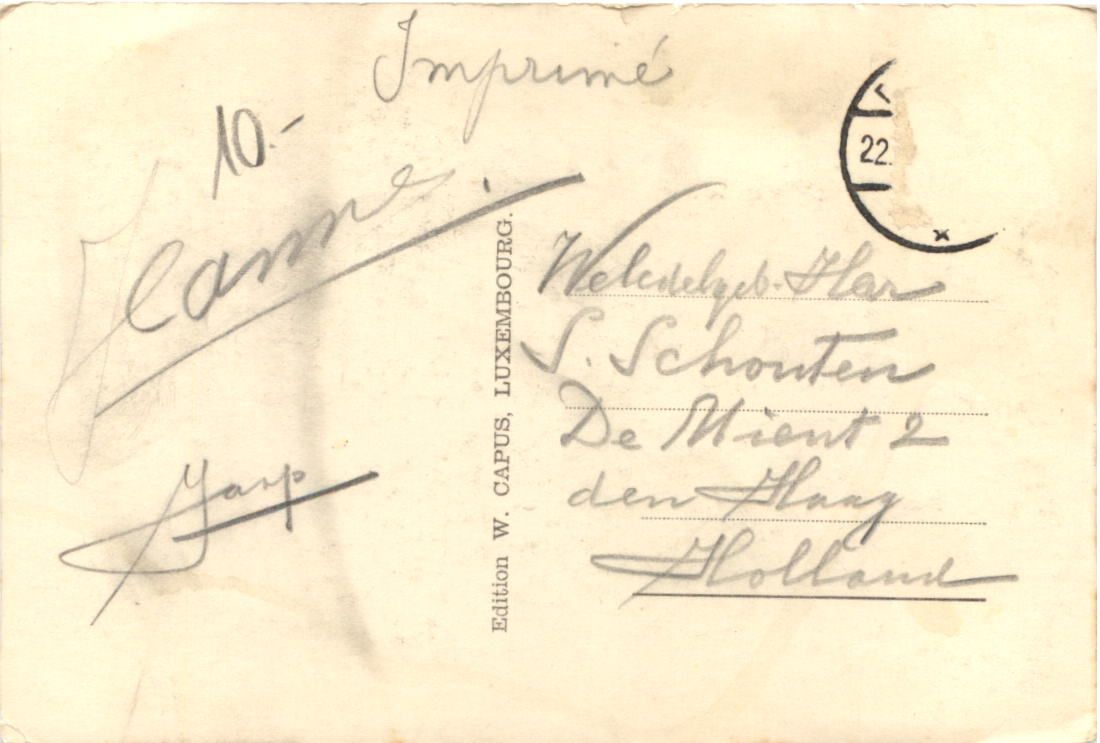 Imprimé
10.-
Jaap
Edition W. CAPUS, LUXEMBOURG.
22.
Weledelgeb. Heer
S. Schouten
De Mient 2
den Haag
Holland